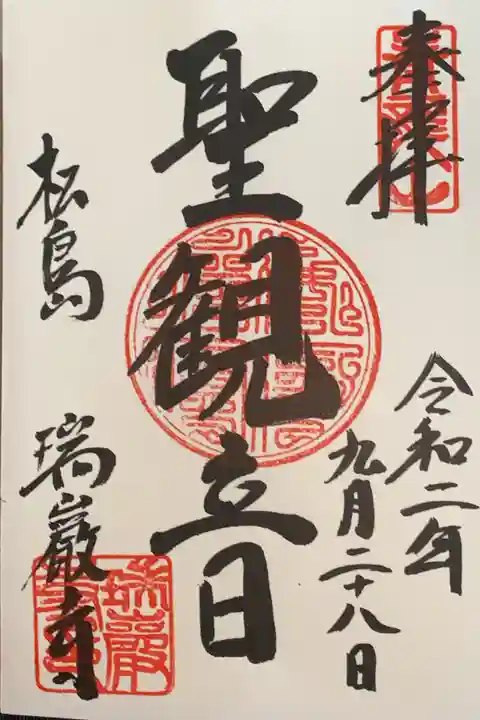 奉拝
令和二年
九月二十八日
聖観立日
松島
瑞巌寺